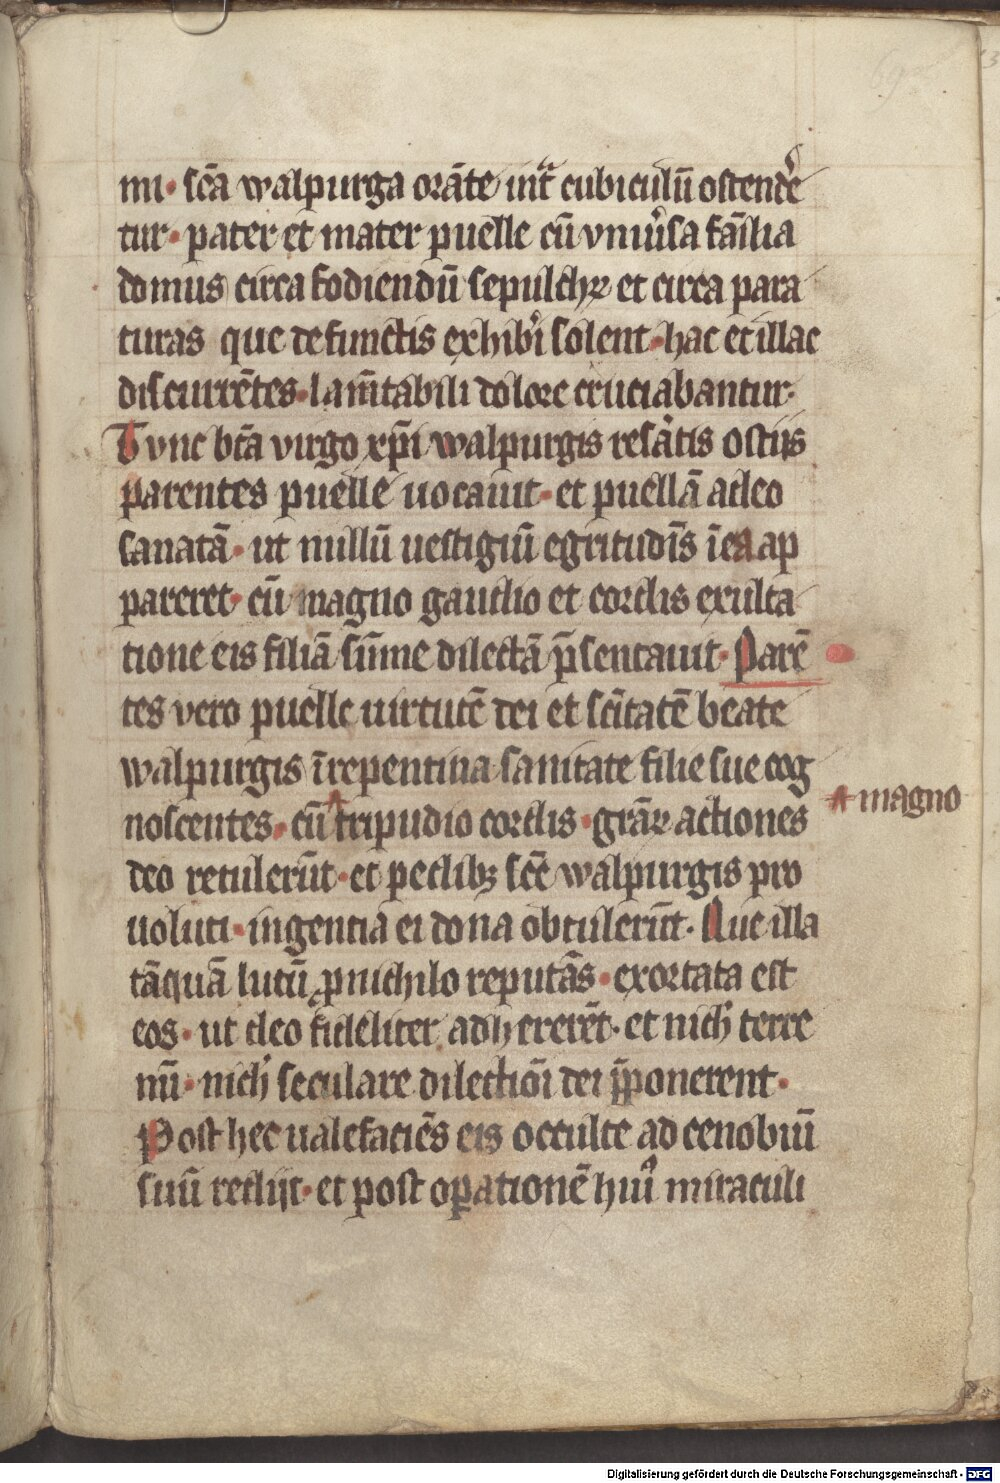 mi · sc̄a walpurga orāte int͛ cubiculū ostende͛
tur · pater et mater puelle cū vniu͛sa fāilia
domus circa fodiendū sepulchꝝ et circa para
turas que defunctis exhib͛i solent · hac et illac
discurrētes · lam̄tabili dolore cruciabantur ·
Tvnc bt̄a virgo xp̄i walpurgis resātis ostiis
parentes puelle uocauit · et puellā adeo
sanatā · ut nullū uestigiū egritudīs ī ea ap
pareret · cū magno gaudio et cordis exulta
tione eis filiā sūme dilectā p̄sentauit · Parē
tes vero puelle uirtutē dei et sc̄itatē beate
walpurgis ī repentina sanitate filie sue cog
noscentes · cū tripudio cordis · grāꝝ actiones
magno
deo retulerūt · et pedibꝫ sc̄e walpurgis pro
uoluti · ingentia ei dona obtulerūt · Que illa
tāquā lutū ꝓ nichilo reputās · exortata est
eos · ut deo fideliter adhererēt · et nich͛ terre
nū · nich͛ seculare dilectiōi dei p̄ponerent ·
Post hec ualefaciēs eis occulte ad cenobiū
suū rediit · et post oꝑationē huiꝰ miraculi
69
Digitalisierung gefördert durch die Deutsche Forschungsgemeinschaft - DFG